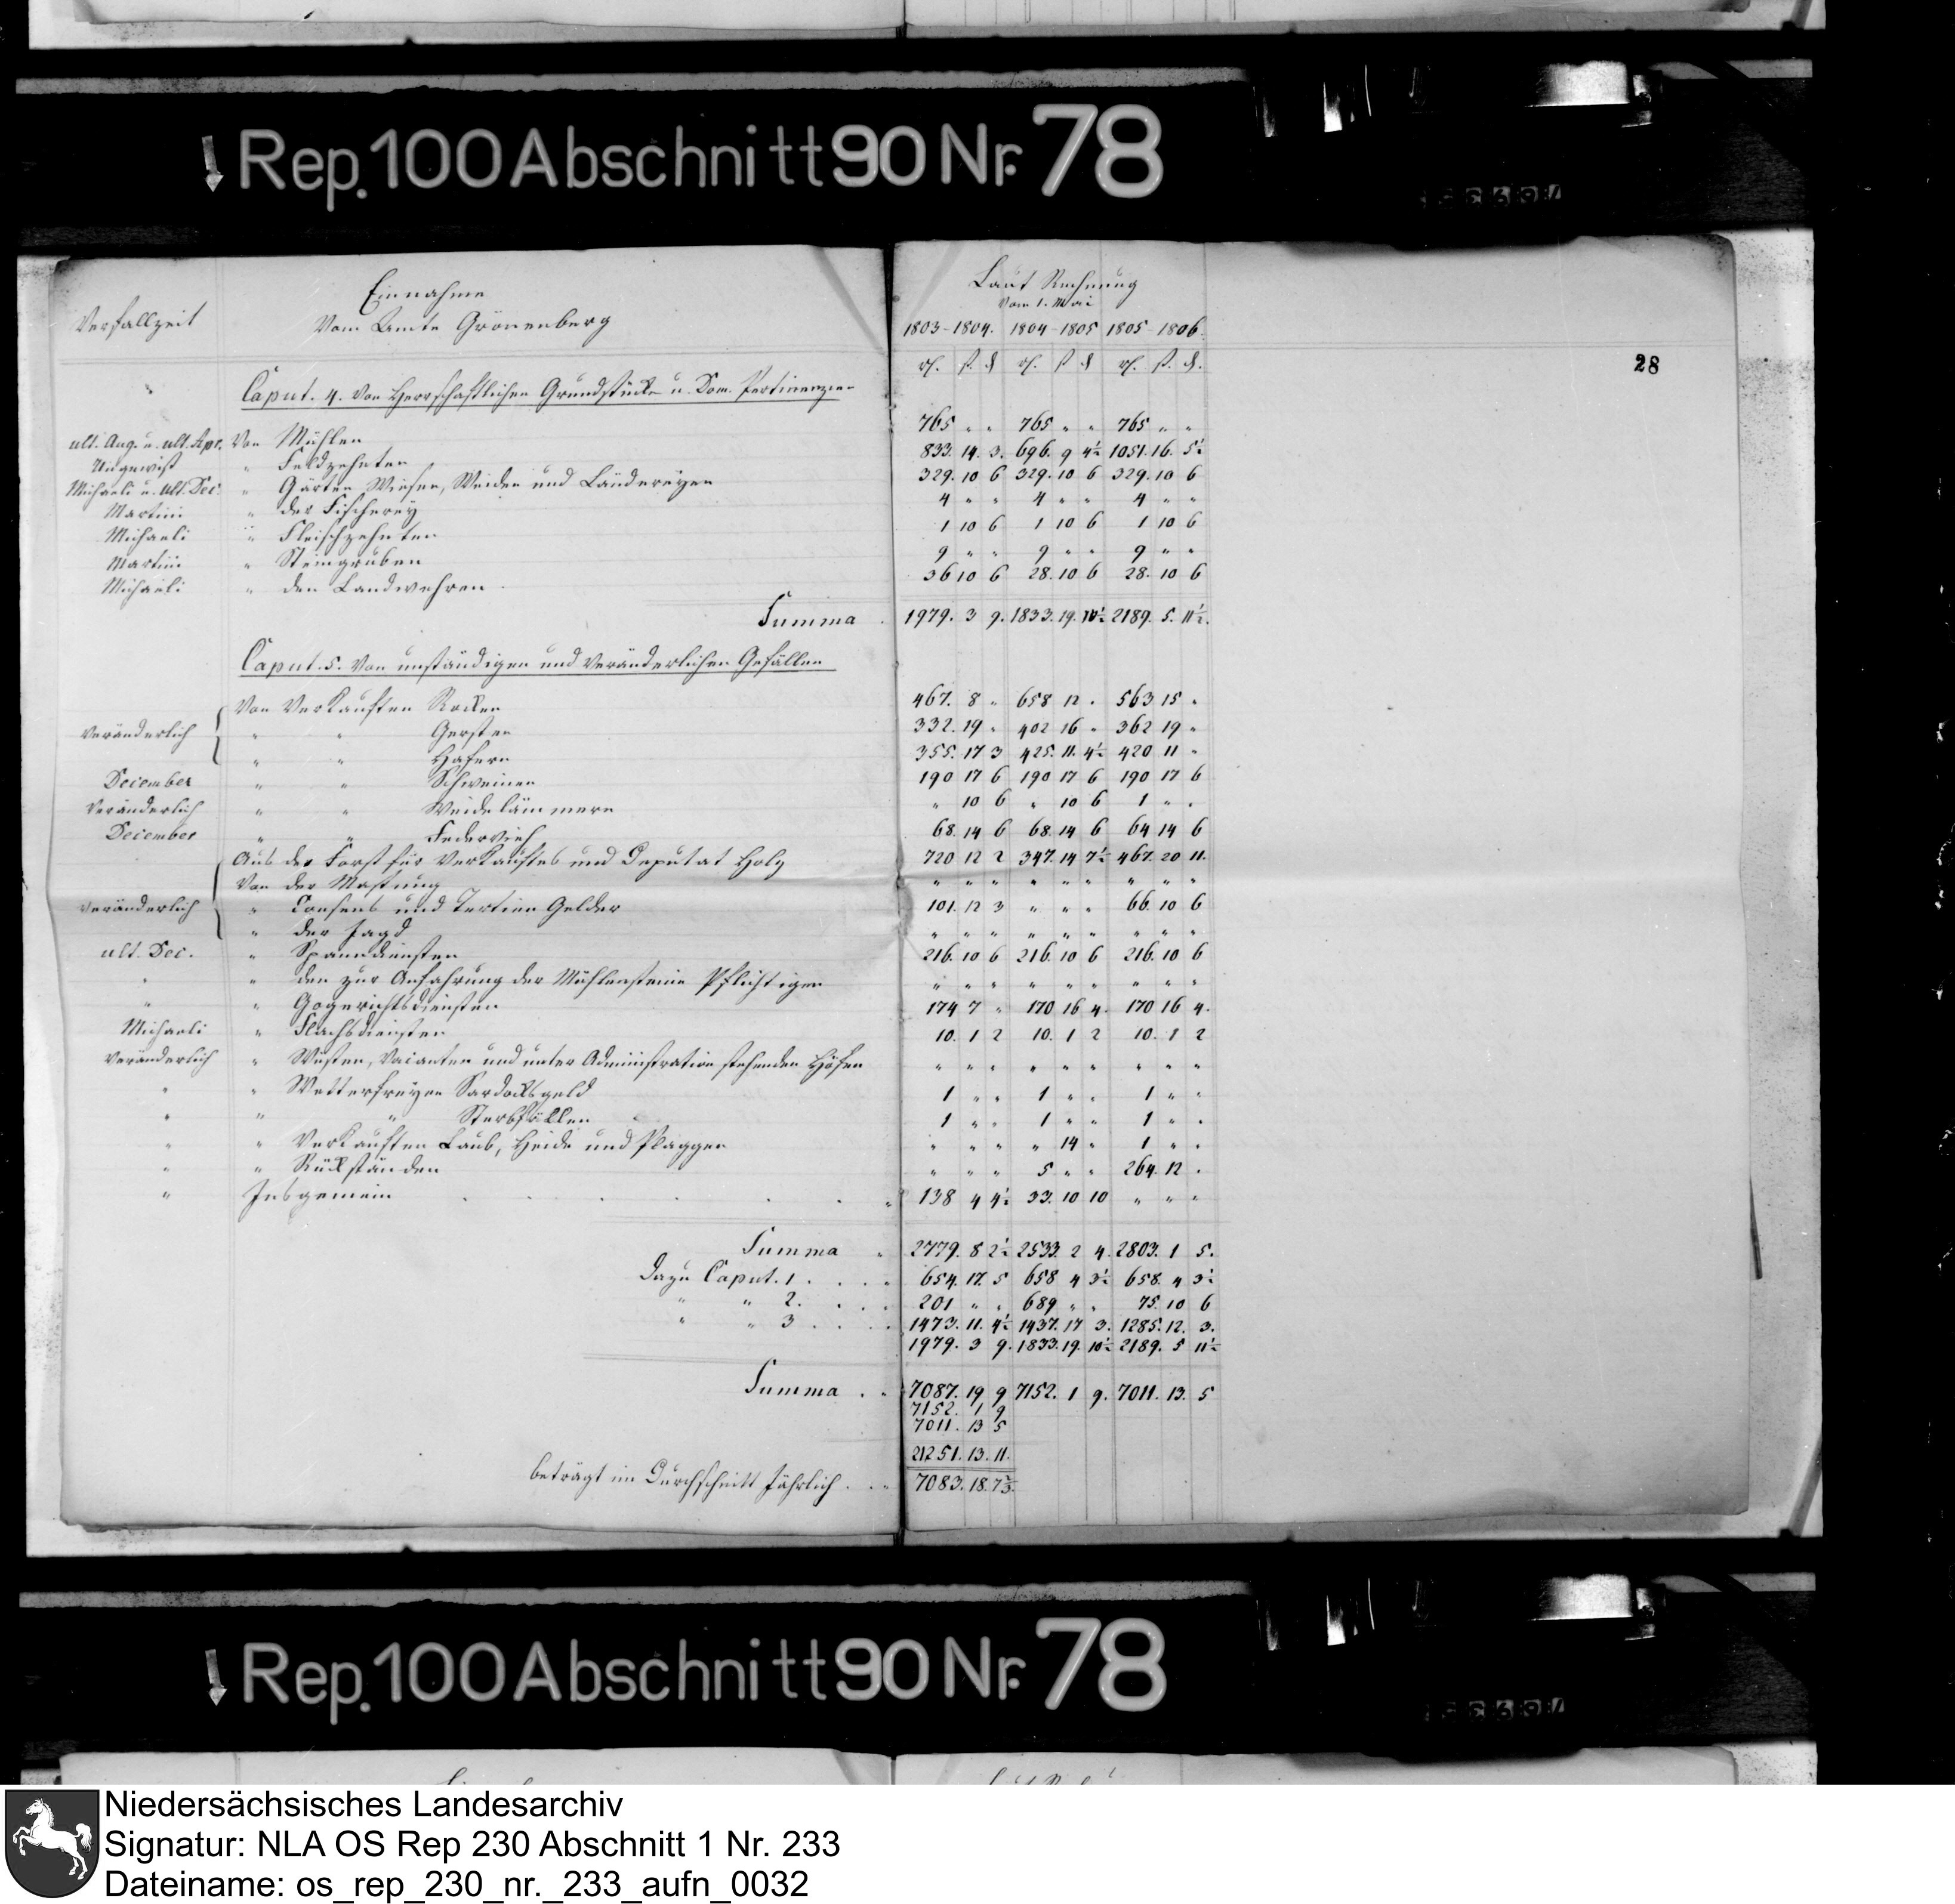 Rep. 100 Abschnitt 90 Nr. 78
Verfallzeit
Einnahme
Vom Amte Grönenberg
Laut Rechnung
vom 1. Mai
1803-1804. 1804-1805 1805-1806.
28
Caput. 4. Von Herrschaftlichen Grundstücken u. Dom. Pertinenzien
ult. Aug. u. ult. Apr. Von Mühlen 765 " " 765 " " 765 " "
Ungewiß " Feldzehnten 833. 14. 3. 696. 9 4½ 1051. 16. 5½
Michaeli u. ult. Dec. " Gärten Wiesen, Weiden und Ländereyen 329. 10 6 329. 10 6 329. 10 6
Martini " der Fischerey 4 " " 4 " " 4 " "
Michaeli " Fleischzehnten 1 10 6 1 10 6 1 10 6
Martini " Steingruben 9 " " 9 " " 9 " "
Michaeli " den Landwehren 36 10 6 28. 10 6 28. 10 6
Summa 1979. 3 9. 1833. 19. 10½ 2189. 5. 11½.
Caput. 5. Von unständigen und veränderlichen Gefällen
Von verkauften Rocken 467. 8 " 658 12 " 563 15 "
veränderlich " " Gersten 332. 19 " 402 16 " 362 19 "
" " Hafern 355. 17 3 425. 11. 4½ 420 11 "
December " " Schweinen 190 17 6 190 17 6 190 17 6
Veränderlich " " Weidelämmern " 10 6 " 10 6 1 " "
December " " Federvieh 68. 14 6 68. 14 6 64 14 6
Aus der Forst für verkauftes und Deputat Holz 720 12 2 347. 14 7½ 467. 20 11.
Von der Mastung " " " " " " " " "
veränderlich " Consens und Tertien Gelder 101. 12 3 " " " 66. 10 6
" der Jagd " " " " " " " " "
ult. Dec. " Spanndiensten 216. 10 6 216. 10 6 216. 10 6
" " den zur Anfahrung der Mühlensteine Pflichtigen " " " " " " " " "
" " Gogerichtsdiensten 174 7 " 170 16 4. 170 16 4.
Michaeli " Flachsdiensten 10. 1 2 10. 1 2 10. 1 2
Veränderlich " Wüsten, Vacanten und unter Administration stehenden Höfen " " " " " " " " "
" " Wetterfreyen 1 " " 1 " " 1 " "
" " " Sterbfällen 1 " " 1 " " 1 " "
" " Verkauften Laub, Heide und Plaggen " " " " 14 " 1 " "
" " Rückständen " " " 5 " " 264. 12 "
" Insgemein 138 4 4½ 33. 10 10 " " "
Summa 2779. 8 2½ 2533. 2 4. 2803. 1 5.
Dazu Caput. 1 654. 17. 5 658 4 3½ 658. 4 3½
" " 2. 201 " " 689 " " 75. 10 6
" " 3 1473. 11. 4½ 1437. 17 3. 1285. 12. 3.
1979. 3 9. 1833. 19. 10½ 2189. 5 11½
Summa 7087. 19 9 7152. 1 9. 7011. 13. 5
7152. 1 9
7011. 13 5
21251. 13. 11.
beträgt im Durchschnitt Jährlich 7083. 18. 7⅔.
Rep. 100 Abschnitt 90 Nr. 78
Niedersächsisches Landesarchiv
Signatur: NLA OS Rep 230 Abschnitt 1 Nr. 233
Dateiname: os_rep_230_nr._233_aufn_0032